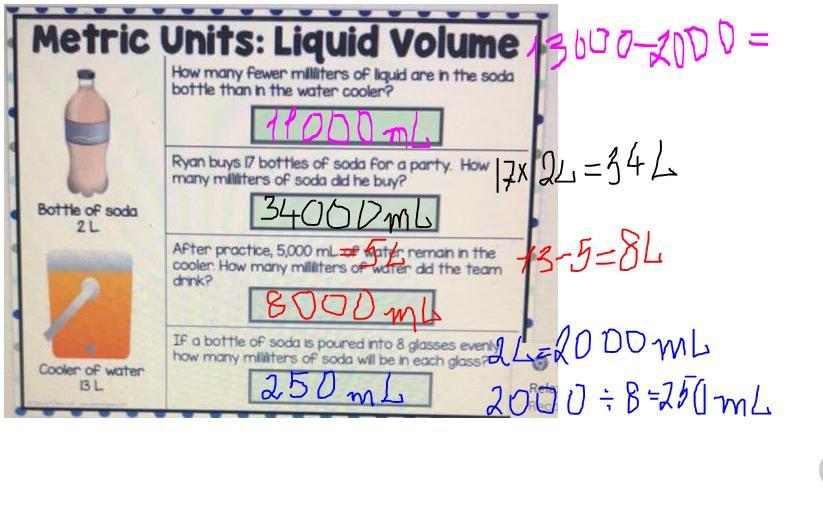 Metric Units: Liquid Volume
13000-2000=
How many fewer milliliters of liquid are in the soda
bottle than in the water cooler?
11000 mL
Ryan buys 17 bottles of soda for a party. How
many milliliters of soda did he buy?
17x 2L=34L
34000mL
Bottle of soda
2 L
After practice, 5,000 mL of water remain in the
=5L
cooler. How many milliliters of water did the team
drink?
13-5=8L
8000 mL
If a bottle of soda is poured into 8 glasses evenly,
how many milliliters of soda will be in each glass?
2L=2000mL
250 mL
2000÷8=250mL
Cooler of water
13 L